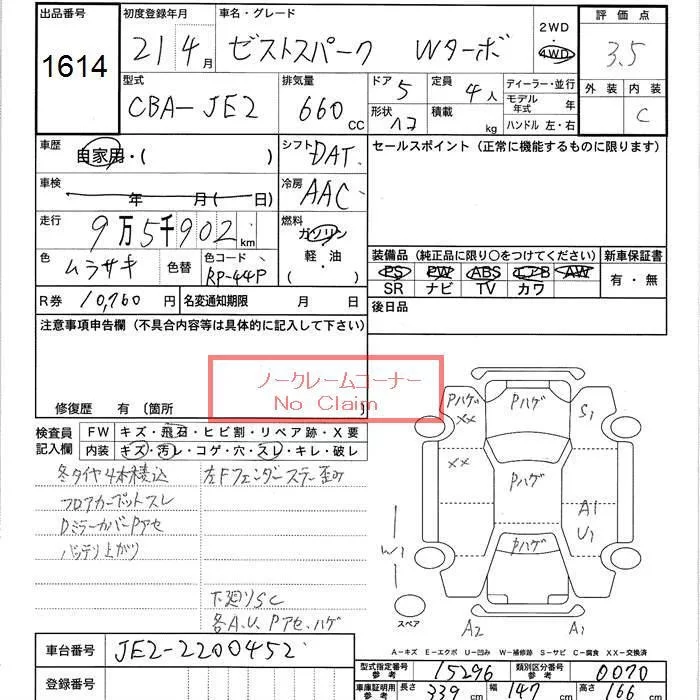 出品番号 初度登録年月 車名・グレード 2WD 評価点
1614 21年4月 ゼストスパーク Wターボ 4WD 3.5
型式 排気量 ドア 5 定員 4人 ディーラー・並行 外装 内装
CBA-JE2 660cc 形状 積載 kg モデル年式 年 C
ハンドル 左・右
車歴 自家用・( ) シフト DAT セールスポイント (正常に機能するものに限ります)
車検 年 月( 日) 冷房 AAC
走行 9万5千902km 燃料 ガソリン・軽油・( )
色 ムラサキ 色替 色コード RP-44P
装備品 (純正品に限り○をつけてください) 新車保証書
PS PW ABS エアB AW 有・無
SR ナビ TV カワ
R券 10,760円 名変通知期限 月 日 後日品
注意事項申告欄 (不具合内容等は具体的に記入して下さい)
ノークレームコーナー
No Claim
修復歴 有 (箇所 )
検査員記入欄 FW キズ・飛石・ヒビ割・リペア跡・X要
内装 キズ・汚レ・コゲ・穴・スレ・キレ・破レ
冬タイヤ4本積込 左Fフェンダーステー歪み
フロアカーペットスレ
DミラーカバーPアセ
バッテリ上がり
下廻りSC
各A.U.Pアセ.ハゲ
Pハゲ Pハゲ S1
XX
XX Pハゲ A1
U1
W1 Pハゲ
スペア A2 A1
A-キズ E-エクボ U-凹み W-補修跡 S-サビ C-腐食 XX-交換済
車台番号 JE2-2200452
型式指定番号 参考 15296 類別区分番号 参考 0070
登録番号 車庫証明用 参考 長さ 339cm 幅 147cm 高さ 166cm